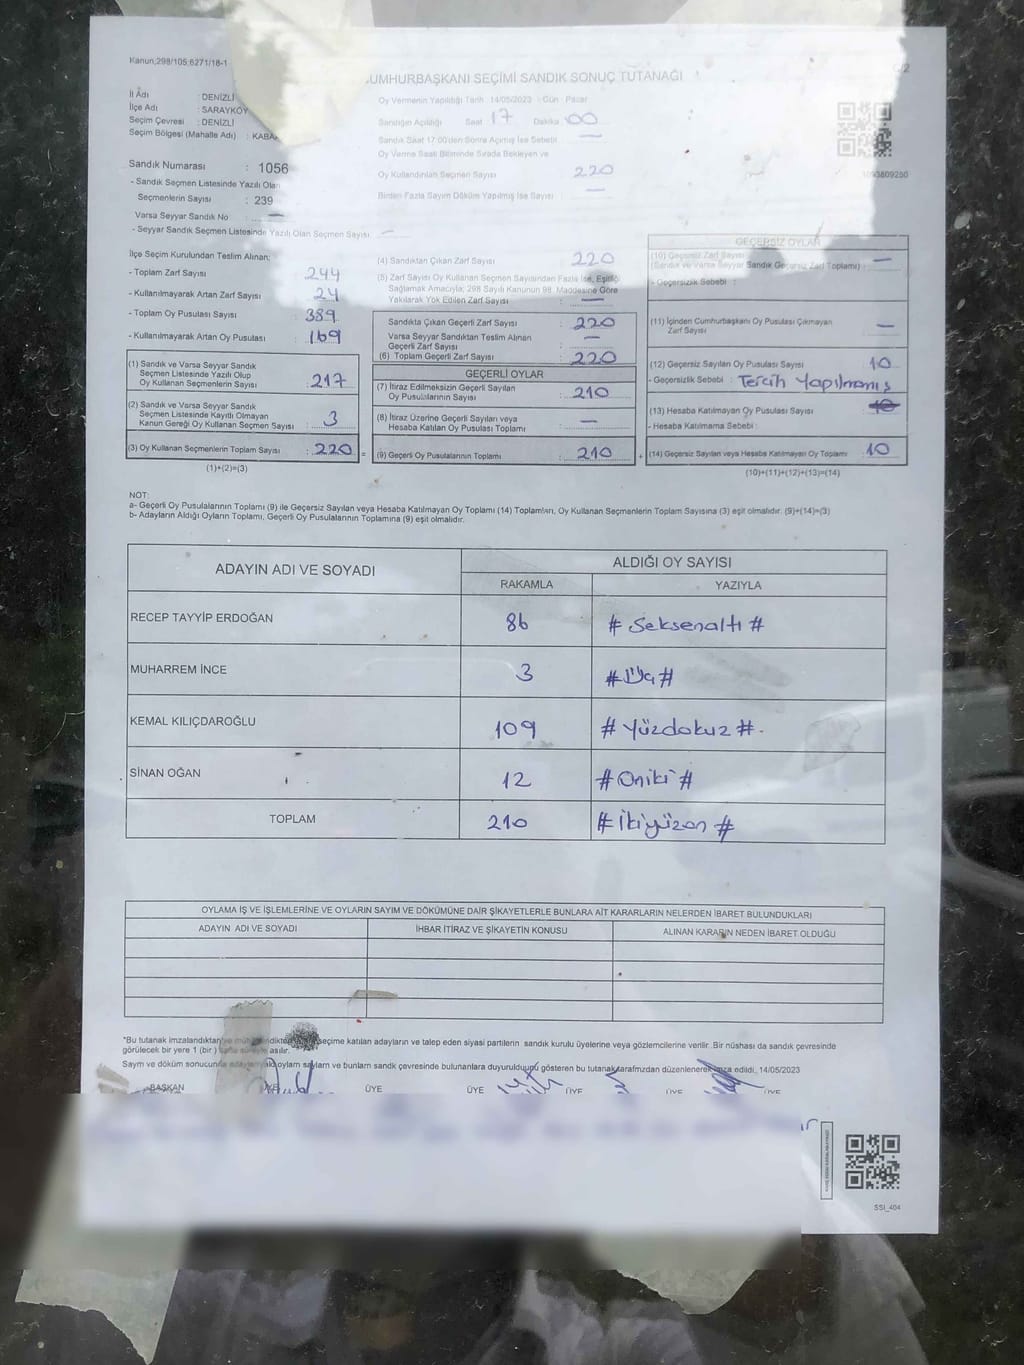 Kanun;298/105;6271/18-1
CUMHURBAŞKANI SEÇİMİ SANDIK SONUÇ TUTANAĞI
İl Adı : DENİZLİ
İlçe Adı : SARAYKÖY
Seçim Çevresi : DENİZLİ
Seçim Bölgesi (Mahalle Adı) :
Oy Vermenin Yapıldığı Tarih 14/05/2023 - Gün : Pazar
Sandığın Açıldığı Saat 17 Dakika 00
Sandık Saat 17:00'den Sonra Açılmış İse Sebebi —
Oy Verme Saati Bitiminde Sırada Bekleyen ve
Oy Kullandırılan Seçmen Sayısı 220
Birden Fazla Sayım Döküm Yapılmış İse Sayısı : —
Sandık Numarası : 1056
- Sandık Seçmen Listesinde Yazılı Olan
Seçmenlerin Sayısı : 239
Varsa Seyyar Sandık No : —
- Seyyar Sandık Seçmen Listesinde Yazılı Olan Seçmen Sayısı : —
İlçe Seçim Kurulundan Teslim Alınan;
- Toplam Zarf Sayısı : 244
- Kullanılmayarak Artan Zarf Sayısı : 24
- Toplam Oy Pusulası Sayısı : 389
- Kullanılmayarak Artan Oy Pusulası : 169
(1) Sandık ve Varsa Seyyar Sandık
Seçmen Listesinde Yazılı Olup
Oy Kullanan Seçmenlerin Sayısı : 217
(2) Sandık ve Varsa Seyyar Sandık
Seçmen Listesinde Kayıtlı Olmayan
Kanun Gereği Oy Kullanan Seçmen Sayısı : 3
(3) Oy Kullanan Seçmenlerin Toplam Sayısı : 220
(1)+(2)=(3)
(4) Sandıktan Çıkan Zarf Sayısı : 220
(5) Zarf Sayısı Oy Kullanan Seçmen Sayısından Fazla İse, Eşitliği
Sağlamak Amacıyla; 298 Sayılı Kanunun 98. Maddesine Göre
Yakılarak Yok Edilen Zarf Sayısı : —
Sandıkta Çıkan Geçerli Zarf Sayısı : 220
Varsa Seyyar Sandıktan Teslim Alınan
Geçerli Zarf Sayısı : —
(6) Toplam Geçerli Zarf Sayısı : 220
GEÇERLİ OYLAR
(7) İtiraz Edilmeksizin Geçerli Sayılan
Oy Pusulalarının Sayısı : 210
(8) İtiraz Üzerine Geçerli Sayılan veya
Hesaba Katılan Oy Pusulası Toplamı : —
= (9) Geçerli Oy Pusulalarının Toplamı : 210
GEÇERSİZ OYLAR
(10) Geçersiz Zarf Sayısı
(Sandık ve Varsa Seyyar Sandık Geçersiz Zarf Toplamı) : —
- Geçersizlik Sebebi :
(11) İçinden Cumhurbaşkanı Oy Pusulası Çıkmayan
Zarf Sayısı : —
(12) Geçersiz Sayılan Oy Pusulası Sayısı : 10
- Geçersizlik Sebebi : Tercih Yapılmamış
(13) Hesaba Katılmayan Oy Pusulası Sayısı : 10
- Hesaba Katılmama Sebebi :
+ (14) Geçersiz Sayılan veya Hesaba Katılmayan Oy Toplamı : 10
(10)+(11)+(12)+(13)=(14)
NOT:
a- Geçerli Oy Pusulalarının Toplamı (9) ile Geçersiz Sayılan veya Hesaba Katılmayan Oy Toplamı (14) Toplamları, Oy Kullanan Seçmenlerin Toplam Sayısına (3) eşit olmalıdır. (9)+(14)=(3)
b- Adayların Aldığı Oyların Toplamı, Geçerli Oy Pusulalarının Toplamına (9) eşit olmalıdır.
ADAYIN ADI VE SOYADI ALDIĞI OY SAYISI
RAKAMLA YAZIYLA
RECEP TAYYİP ERDOĞAN 86 # Seksenaltı #
MUHARREM İNCE 3 # Üç #
KEMAL KILIÇDAROĞLU 109 # Yüzdokuz #
SİNAN OĞAN 12 # Oniki #
TOPLAM 210 # İkiyüzon #
OYLAMA İŞ VE İŞLEMLERİNE VE OYLARIN SAYIM VE DÖKÜMÜNE DAİR ŞİKAYETLERLE BUNLARA AİT KARARLARIN NELERDEN İBARET BULUNDUKLARI
ADAYIN ADI VE SOYADI İHBAR İTİRAZ VE ŞİKAYETİN KONUSU ALINAN KARARIN NEDEN İBARET OLDUĞU
*Bu tutanak imzalandıktan seçime katılan adayların ve talep eden siyasi partilerin sandık kurulu üyelerine veya gözlemcilerine verilir. Bir nüshası da sandık çevresinde
görülecek bir yere 1 (bir) hafta süreyle asılır.
Sayım ve döküm sonucunda oyların sayıları ve bunların sandık çevresinde bulunanlara duyurulduğunu gösteren bu tutanak tarafımızdan düzenlenerek imza edildi. 14/05/2023
BAŞKAN ÜYE ÜYE ÜYE ÜYE ÜYE
SSI_404